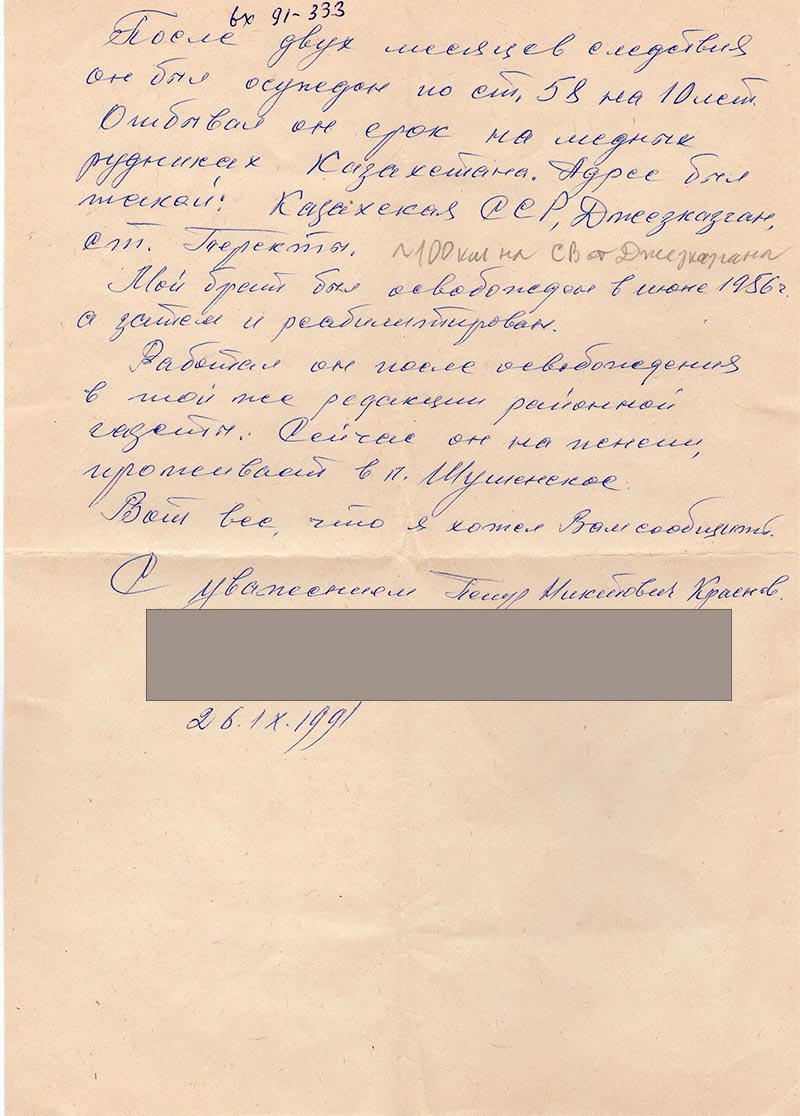 вх 91-333
После двух месяцев следствия
он был осужден по ст. 58 на 10 лет.
Отбывал он срок на медных
рудниках Казахстана. Адрес был
такой: Казахская ССР, Джезказган,
ст. Теректы. ~100 км на СВ от Джезказгана
Мой брат был освобожден в июне 1956 г.
а затем и реабилитирован.
Работал он после освобождения
в той же редакции районной
газеты. Сейчас он на пенсии,
проживает в п. Шушенское.
Вот все, что я хотел Вам сообщить.
С уважением Петр Никитович Краснов.
26.IX.1991